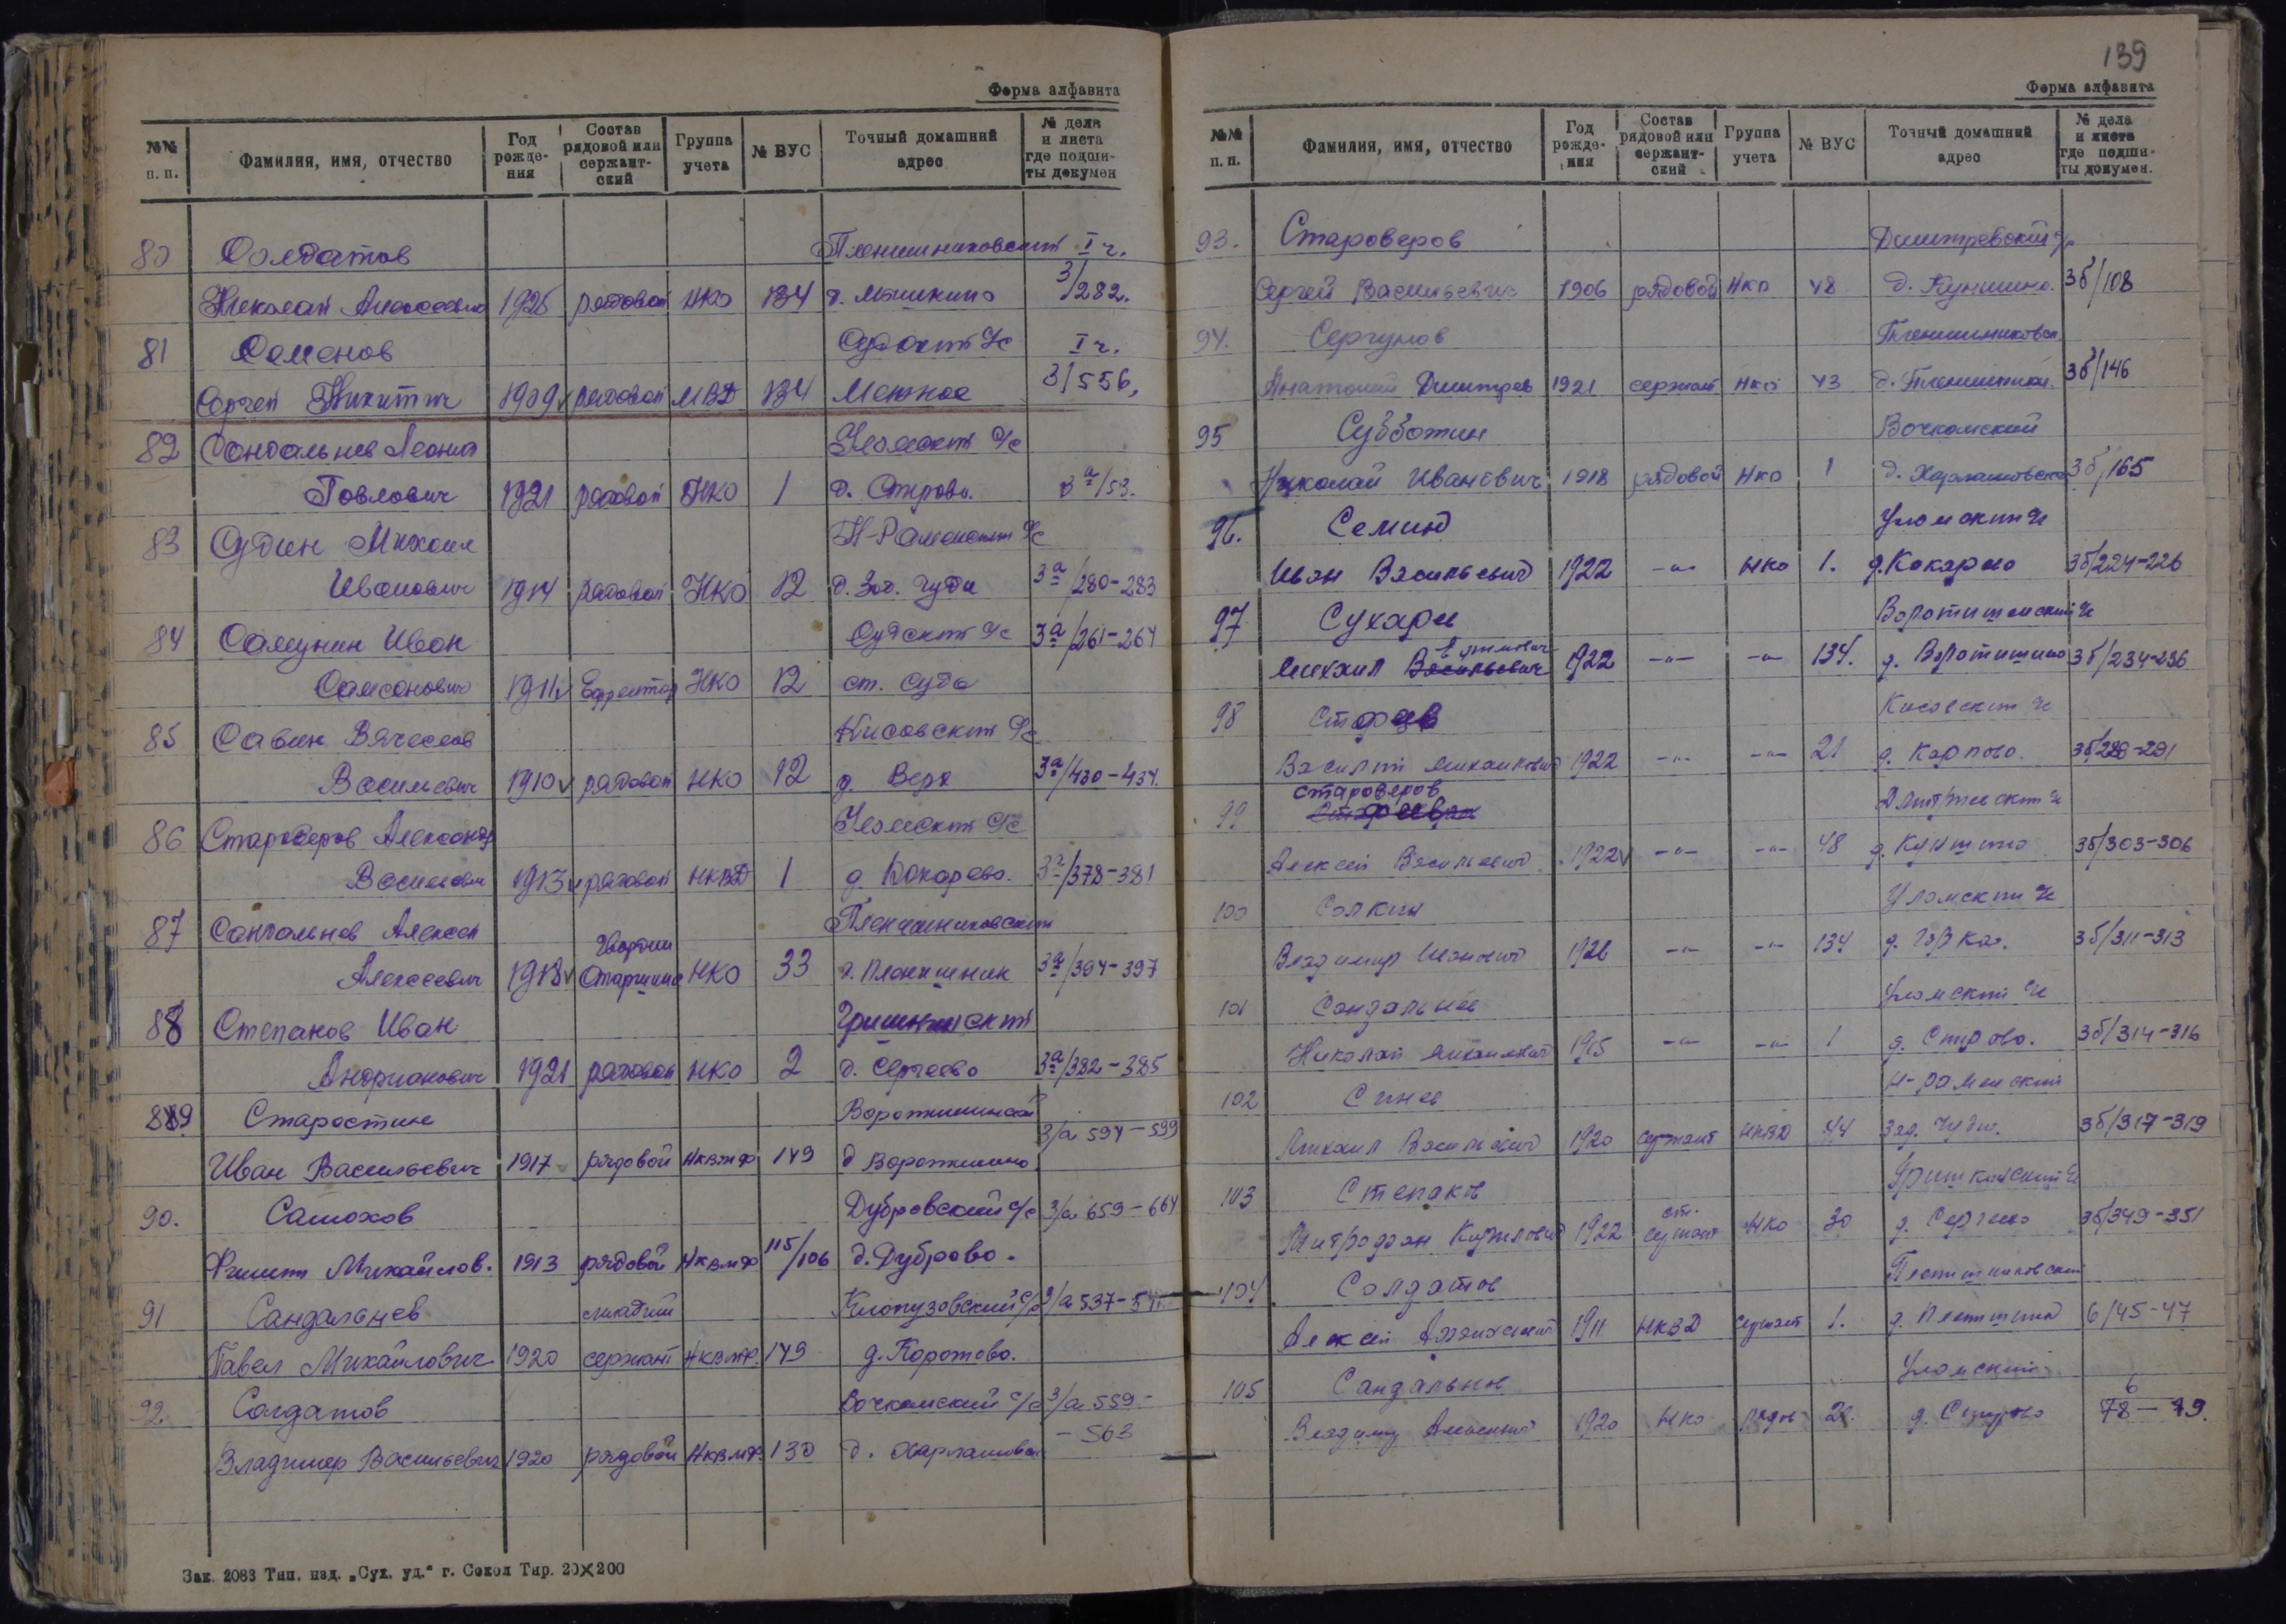 Форма алфавита
№№ п. п. Фамилия, имя, отчество Год рожде-ния Состав рядовой или сержант-ский Группа учета № ВУС Точный домашний адрес № дела и листа где подши-ты докумен
80 Солдатов Пленишниковский I ч.
Николай Алексеевич 1925 рядовой НКО 134 д. Мышкино 3/282.
81 Семенов Судский с/с I ч.
Сергей Никитич 1909 рядовой МВД 134 Межное 3/556,
82 Сандальнев Леонид Уломский с/с
Павлович 1921 рядовой НКО 1 д. Спирово. 3а/53.
83 Судин Михаил Н-Раменский с/с
Иванович 1914 рядовой НКО 12 д. Зад. Чуди 3а/280-283
84 Самунин Иван Судский с/с 3а/261-264
Самсонович 1911 Ефрейтор НКО 12 ст. Суда
85 Савин Вячеслав Кисовский с/с
Васильевич 1910 рядовой НКО 12 д. Верх 3а/430-434.
86 Староверов Александр Уломский с/с
Васильевич 1913 рядовой НКВД 1 д. Кокарево. 3а/378-381
87 Сандальнев Алексей Пленишниковский
гвардии
Алексеевич 1918 Старшина НКО 33 д. Пленишник 3а/394-397
88 Степанов Иван Гришкинский
Андрианович 1921 рядовой НКО 2 д. Сергеево 3а/382-385
89 Старостин Воротишинский 3/а 594-599
Иван Васильевич 1917 рядовой НКВМФ 149 д Воротишино
90. Самохов Дубровский с/с 3/а 659-664
Филипп Михайлов. 1913 рядовой НКВМФ 115/106 д. Дуброво.
91 Сандальнев младший Клопузовский с/с 3/а 537-
Павел Михайлович 1920 сержант НКВМФ. 149 д. Коротово.
92. Солдатов Вочкомский с/с 3/а 559-
- 563
Владимир Васильевич 1920 рядовой НКВМФ. 130 д. Харламовск
Зак. 2083 Тип. изд. „Сух. уд.“ г. Сокол Тир. 20х200
139
Форма алфавита
№№ п. п. Фамилия, имя, отчество Год рожде-ния Состав рядовой или сержант-ский Группа учета № ВУС Точный домашний адрес № дела и листа где подши-ты докумен.
93. Староверов Дмитревский
Сергей Васильевич 1906 рядовой НКО 48 д. Куншино. 3б/108
94. Сергунов Пленишниковск.
Анатолий Дмитрев 1921 сержант НКО 43 д. Пленишник. 3б/146
95 Субботин Вочкомский
Николай Иванович 1918 рядовой НКО 1 д. Харламовска 3б/165
96. Семино Уломский с/с
Иван Васильевич 1922 -"- НКО 1. д. Кокарево 3б/224-226
97 Сухарев Воротишинский с/с
Михаил Васильевич 1922 -"- -"- 134. д. Воротишино 3б/234-236
98 Кисовский с/с
Василий Михайлович 1922 -"- -"- 21 д. Карпово. 3б/288-291
староверов
99 Дмитриевский с/с
Алексей Васильевич 1922 -"- -"- 48 д. Куншино 3б/303-306
100 Солкин Уломский с/с
Владимир Иванович 1926 -"- -"- 134 д. Горка. 3б/311-313
101 Сандальнев Уломский с/с
Николай Михайлович 1915 -"- -"- 1 д. Спирово. 3б/314-316
102 Синев Н-Раменский
Михаил Васильевич 1920 сержант НКВД 44 Зад. Чуди. 3б/317-319
103 Степанов Гришкинский с/с
ст.
Митрофан Кириллович 1922 сержант НКО 30 д. Сергеево 3б/349-351
104. Солдатов Пленишниковский
Алексей 1911 НКВД сержант 1. д. Пленишник 6/45-47
105 Сандальнев Уломский
6
Владимир Алексеевич 1920 НКО рядов 2. д. Спирово 78-79.